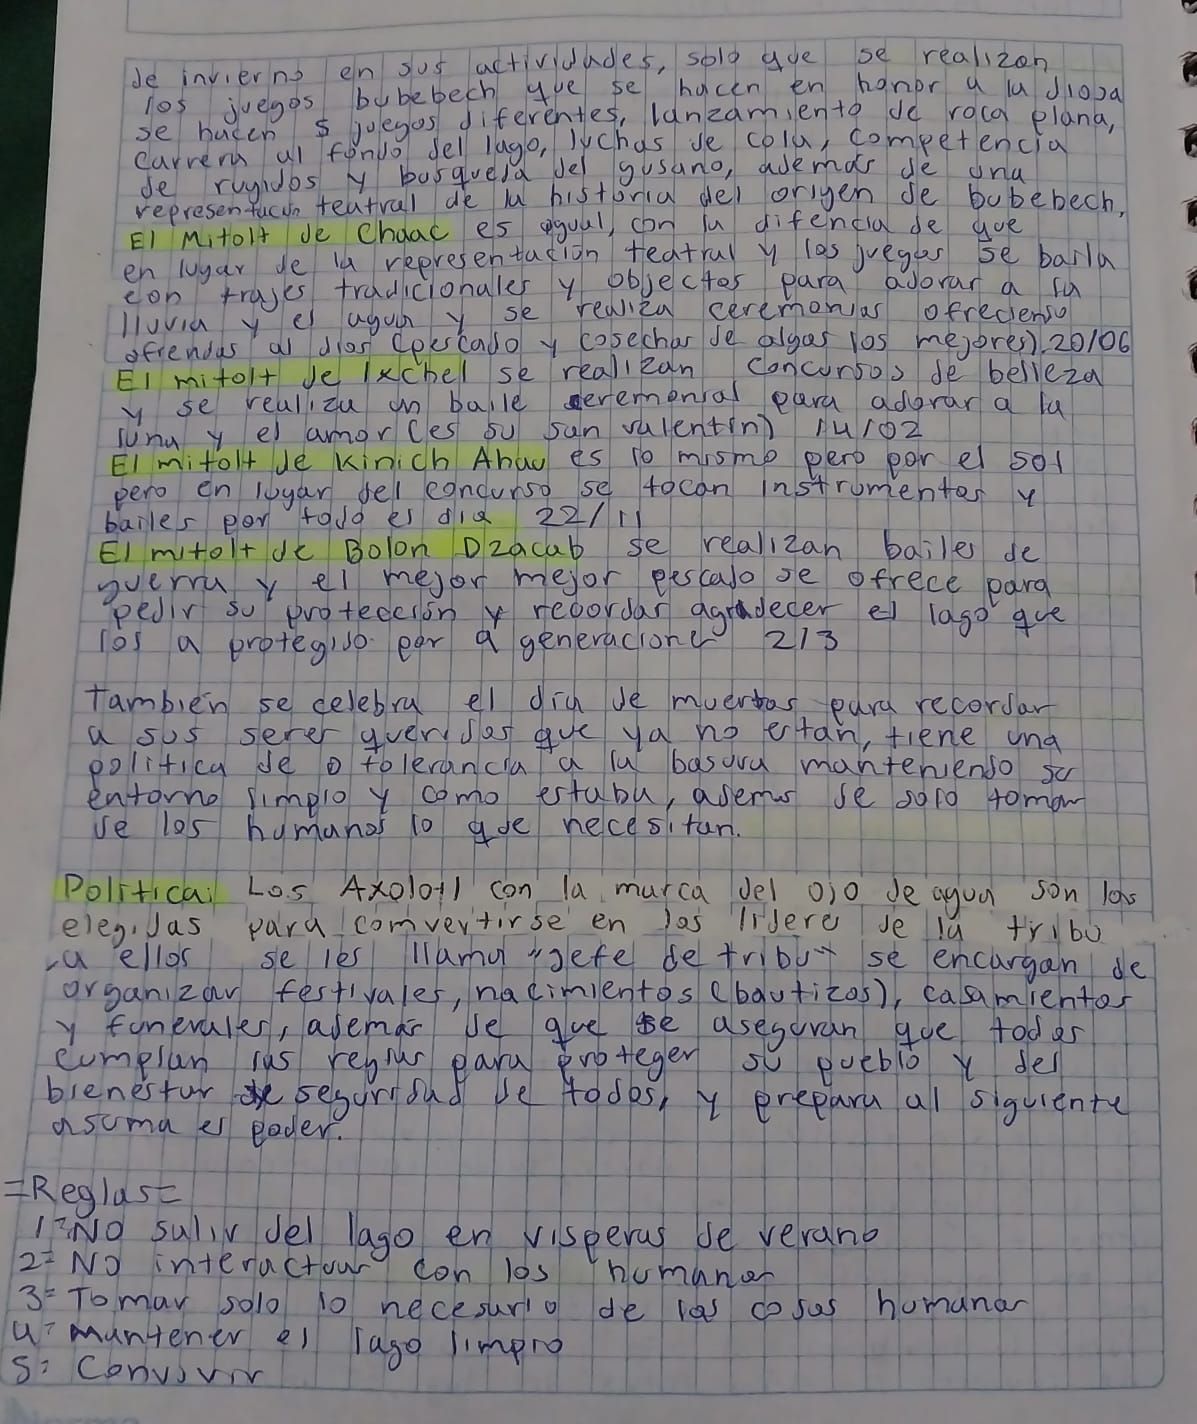 de invierno en sus actividades, solo que se realizan
los juegos bubebech que se hacen en honor a la diosa
se hacen 5 juegos diferentes, lanzamiento de roca plana,
carrera al fondo del lago, luchas de cola, competencia
de rugidos y busqueda del gusano, ademas de una
representacion teatral de la historia del origen de bubebech,
El Mitolt de Chaac es igual, con la difencia de que
en lugar de la representación teatral y los juegos se baila
con trajes tradicionales y objectos para adorar a la
lluvia y el agua y se realiza ceremonias ofreciendo
ofrendas al dios (pescado y cosechas de algas los mejores). 20/06
El mitolt de Ixchel se realizan concursos de belleza
y se realiza un baile ceremonial para adorar a la
luna y el amor (es su san valentin) 14/02
El mitolt de Kinich Ahau es lo mismo pero por el sol
pero en lugar del concurso se tocan instrumentos y
bailes por todo el dia 22/11
El mitolt de Bolon Dzacab se realizan bailes de
guerra y el mejor mejor pescado se ofrece para
pedir su protección y recordar agradecer el lago que
los a protegido por a generaciones 2/3
También se celebra el día de muertos para recordar
a sus seres queridos que ya no estan, tiene una
politica de 0 tolerancia a la basura manteniendo su
entorno limpio y como estaba, adems de solo tomar
de los humanos lo que necesitan.
Politica: Los Axolotl con la marca del ojo de agua son los
elegidas para comvertirse en los lidere de la tribu
a ellos se les llama "jefe de tribu" se encargan de
organizar festivales, nacimientos (bautizos), casamientos
y funerales, ademas de que se aseguran que todos
cumplan las reglas para proteger su pueblo y del
bienestar de seguridad de todos, y prepara al siguiente
asuma el poder.
=Reglas=
1= No salir del lago en visperas de verano
2= No interactuar con los humanos
3= Tomar solo lo necesario de las cosas humanas
4= Mantener el lago limpio
5= Convivir